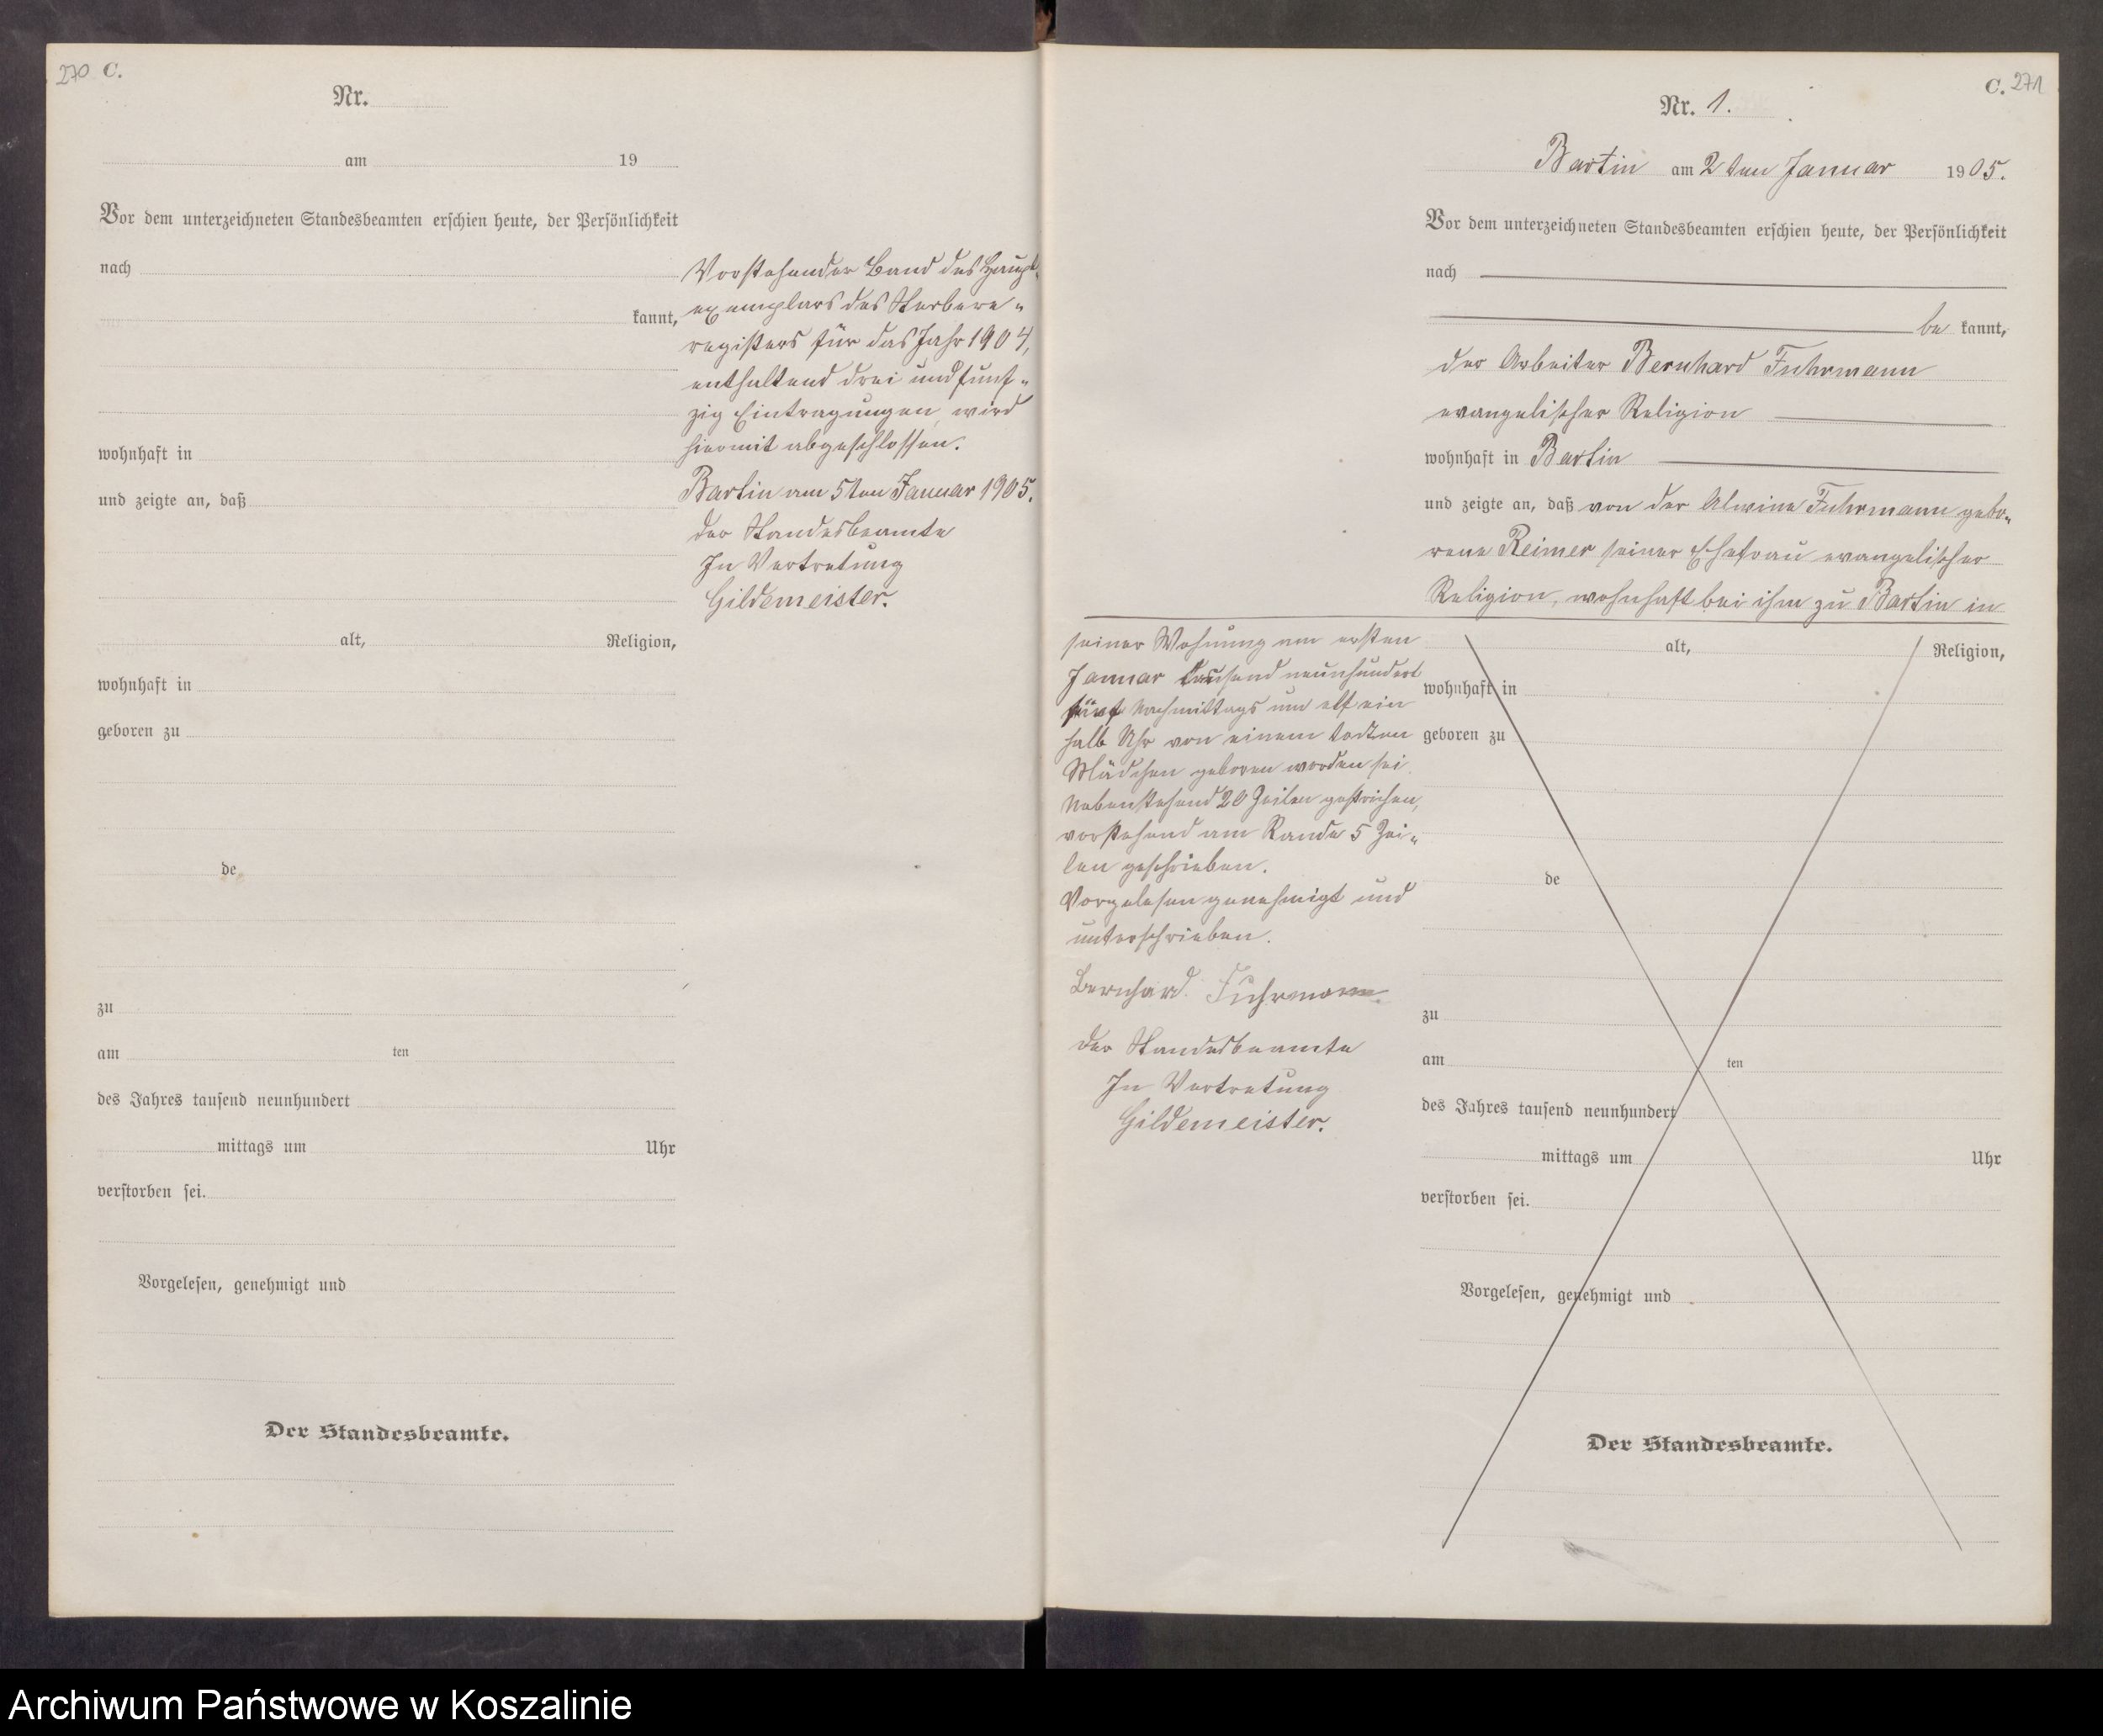 270 C.
Nr.
am 19
Vor dem unterzeichneten Standesbeamten erschien heute, der Persönlichkeit
nach
kannt,
wohnhaft in
und zeigte an, daß
alt, Religion,
wohnhaft in
geboren zu
de
zu
am ten
des Jahres tausend neunhundert
mittags um Uhr
verstorben sei.
Vorgelesen, genehmigt und
Der Standesbeamte.
Vorstehender Band des Haupt-
exemplars des Sterbere-
registers für das Jahr 1904,
enthaltend drei und fünf-
zig Eintragungen, wird
hiermit abgeschlossen.
Bartin am 5ten Januar 1905.
Der Standesbeamte
In Vertretung
Gildemeister.
C. 271
Nr. 1.
Bartin am 2ten Januar 1905.
Vor dem unterzeichneten Standesbeamten erschien heute, der Persönlichkeit
nach
be kannt,
der Arbeiter Bernhard Fuhrmann
evangelischer Religion
wohnhaft in Bartin
und zeigte an, daß von der Alwine Fuhrmann gebo-
rene Reimer seiner Ehefrau evangelischer
Religion, wohnhaft bei ihm zu Bartin in
seiner Wohnung am ersten
Januar tausend neunhundert
fünf Nachmittags um elf ein
halb Uhr von einem todten
Mädchen geboren worden sei.
Nebenstehend 20 Zeilen gestrichen,
vorstehend am Rande 5 Zei-
len geschrieben.
Vorgelesen genehmigt und
unterschrieben.
Bernhard Fuhrmann
Der Standesbeamte
In Vertretung
Gildemeister.
alt, Religion,
wohnhaft in
geboren zu
de
zu
am ten
des Jahres tausend neunhundert
mittags um Uhr
verstorben sei.
Vorgelesen, genehmigt und
Der Standesbeamte.
Archiwum Państwowe w Koszalinie